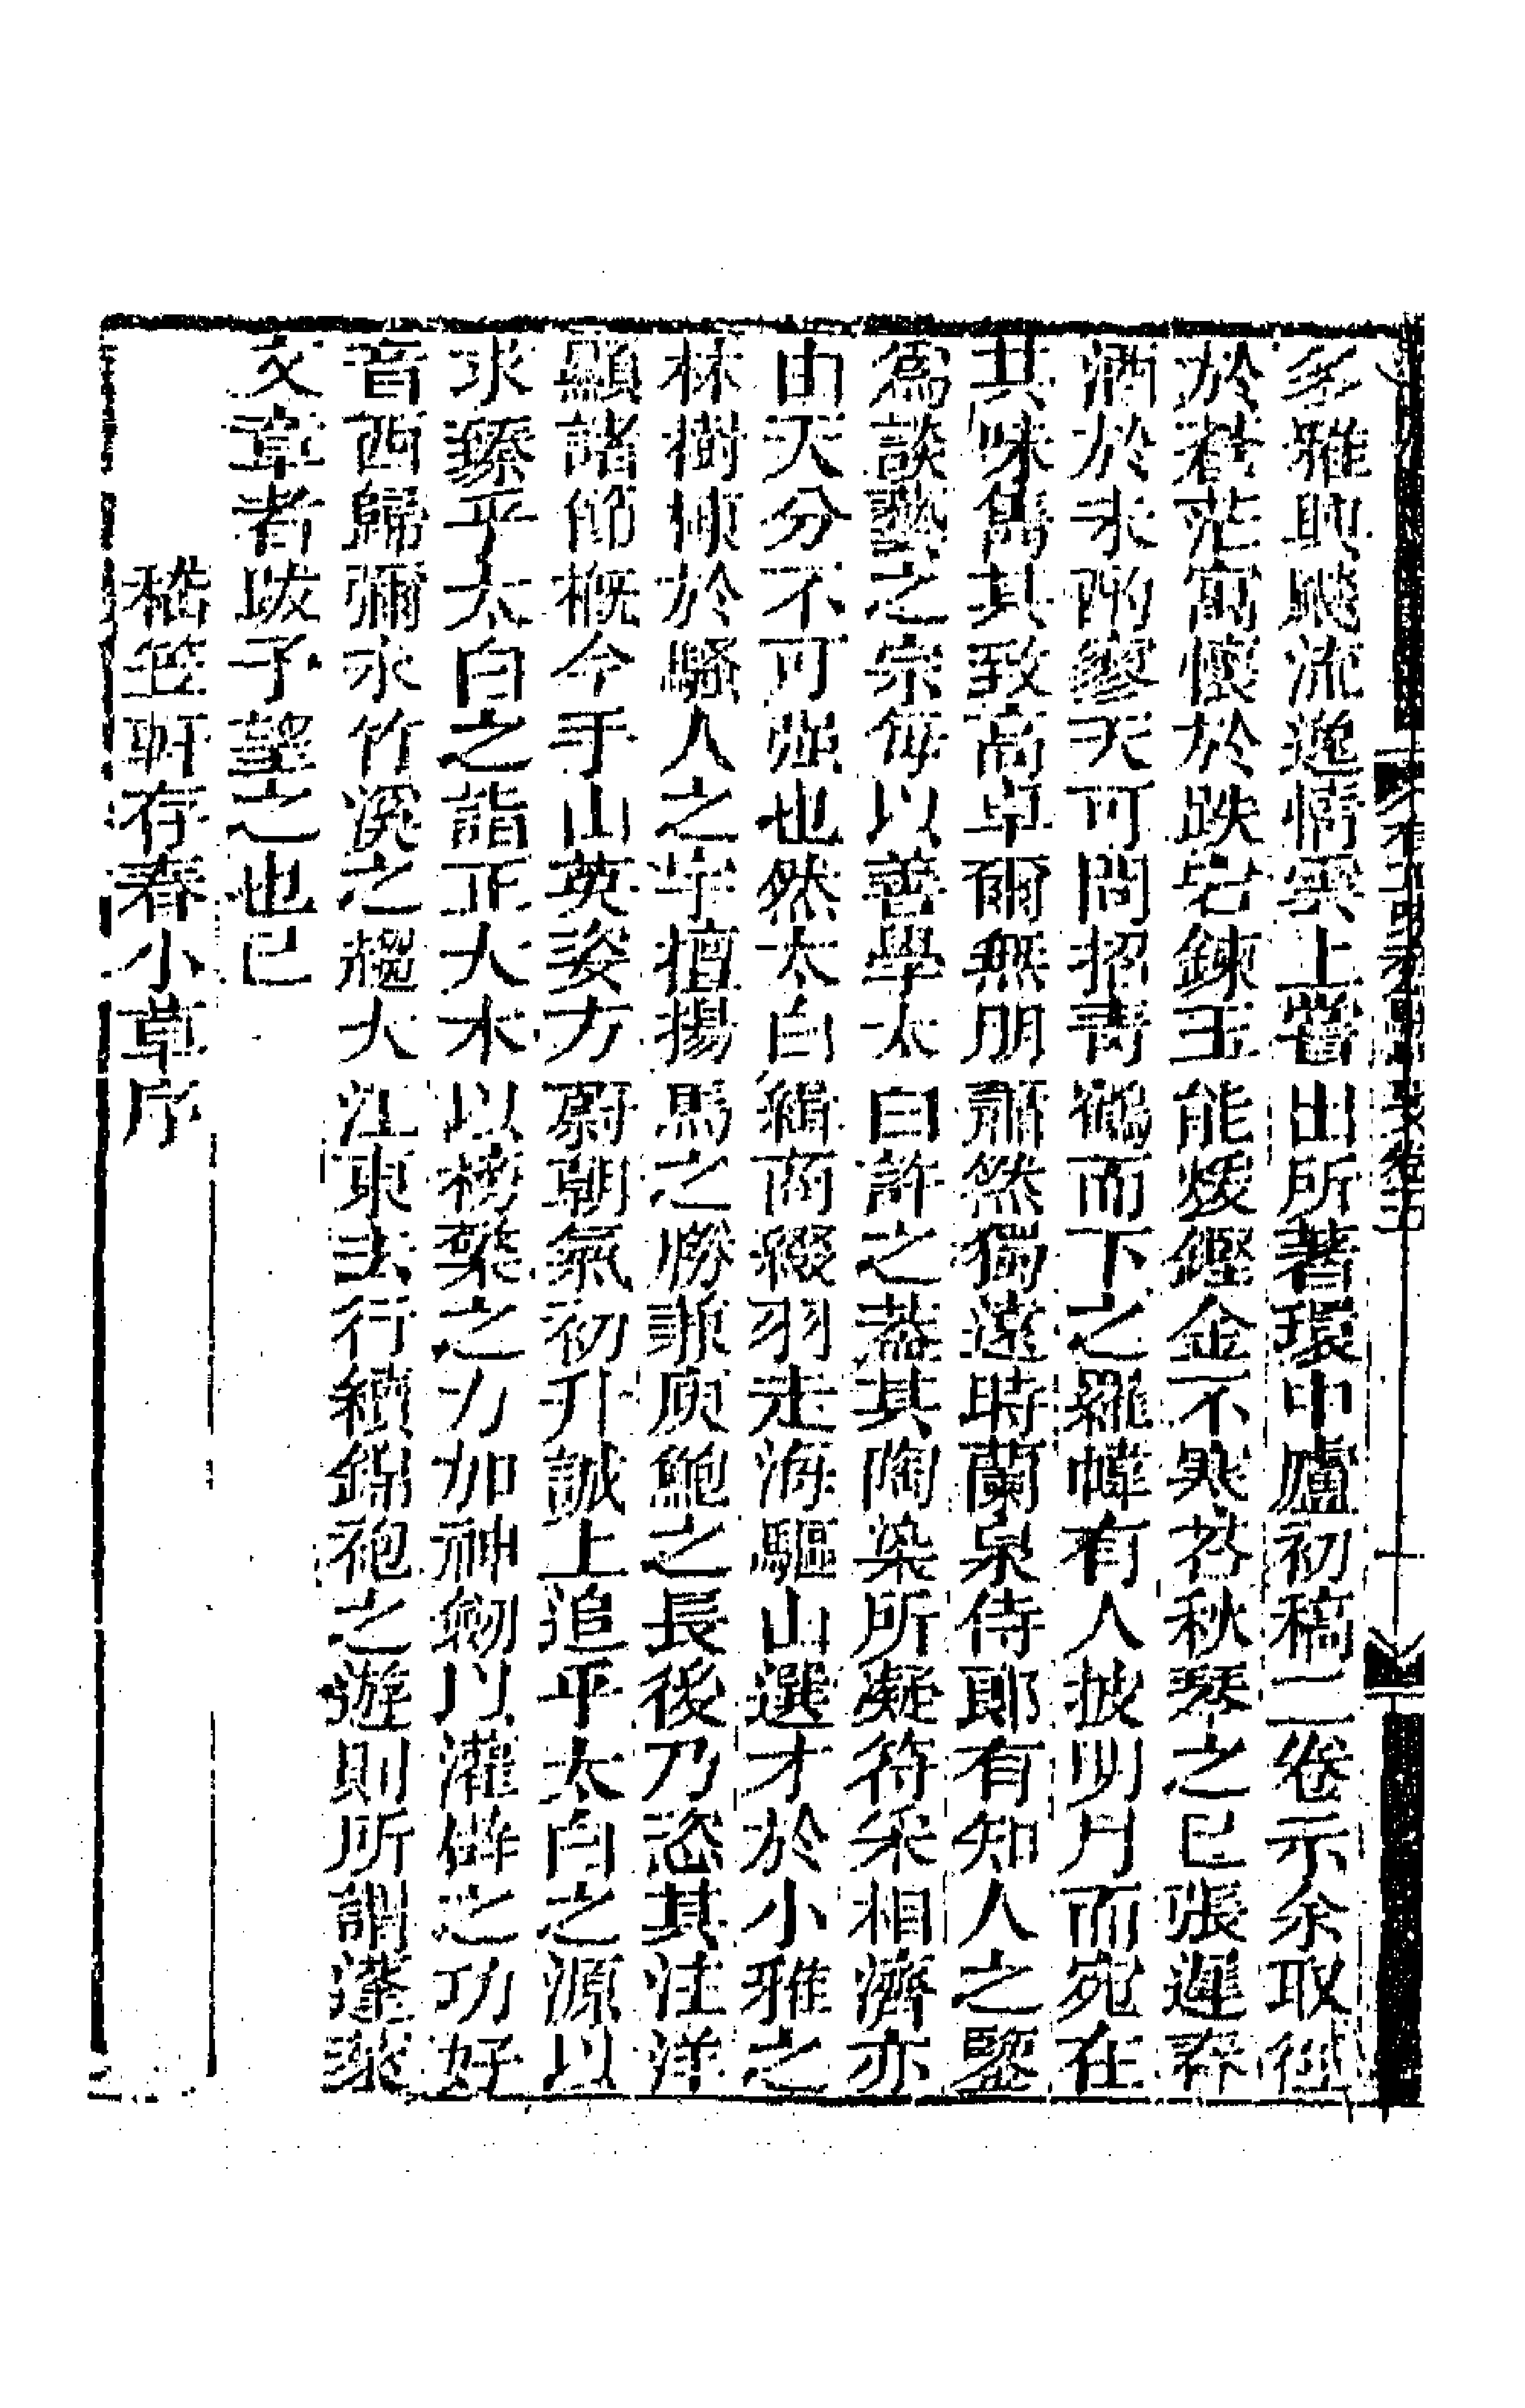 多雅興飈流逸情雲上嘗出所著環中廬初稿二卷示余取徑
於蒼茫寓懷於跌宕鍊玉能煖鏗金不寒若秋琴之已張遲春
酒於未酌寥天可問招靑鶴而下之羅幃有人披明月而宛在
其味雋其致高卓爾無朋翛然獨遠時蘭泉侍郎有知人之鑒
爲談藝之宗每以善學太白許之蓋其陶染所凝符采相濟亦
由天分不可强也然太白緝商綴羽走海驅山選才於小雅之
林樹楨於騷人之宇擅揚馬之勝兼庾鮑之長後乃恣其汪洋
顯諸節概今手山英姿方蔚朝氣初升誠上追乎太白之源以
求臻乎太白之詣正大木以榜檠之力加神劒以灌辟之功好
音西歸彌永竹溪之趣大江東去行續錦袍之遊則所謂蓬萊
文章者跋予望之也已
嵇笠軒存春小草序